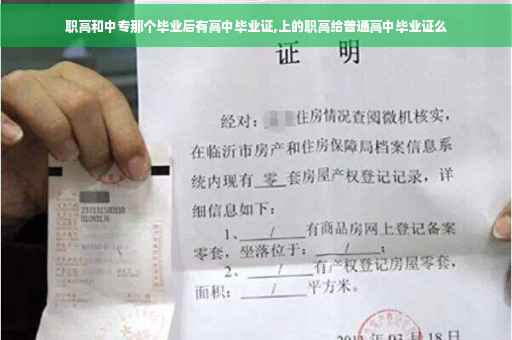 职高和中专那个毕业后有高中毕业证,上的职高给普通高中毕业证么
证 明
经对:住房情况查阅微机核实,
在临沂市房产和住房保障局档案信息系
统内现有 零 套房屋产权登记记录,详
细信息如下:
1、 / 有商品房网上登记备案
零套,坐落位于: / ;
2、 / 有产权登记房屋零套,
面积: / 平方米。
月18日